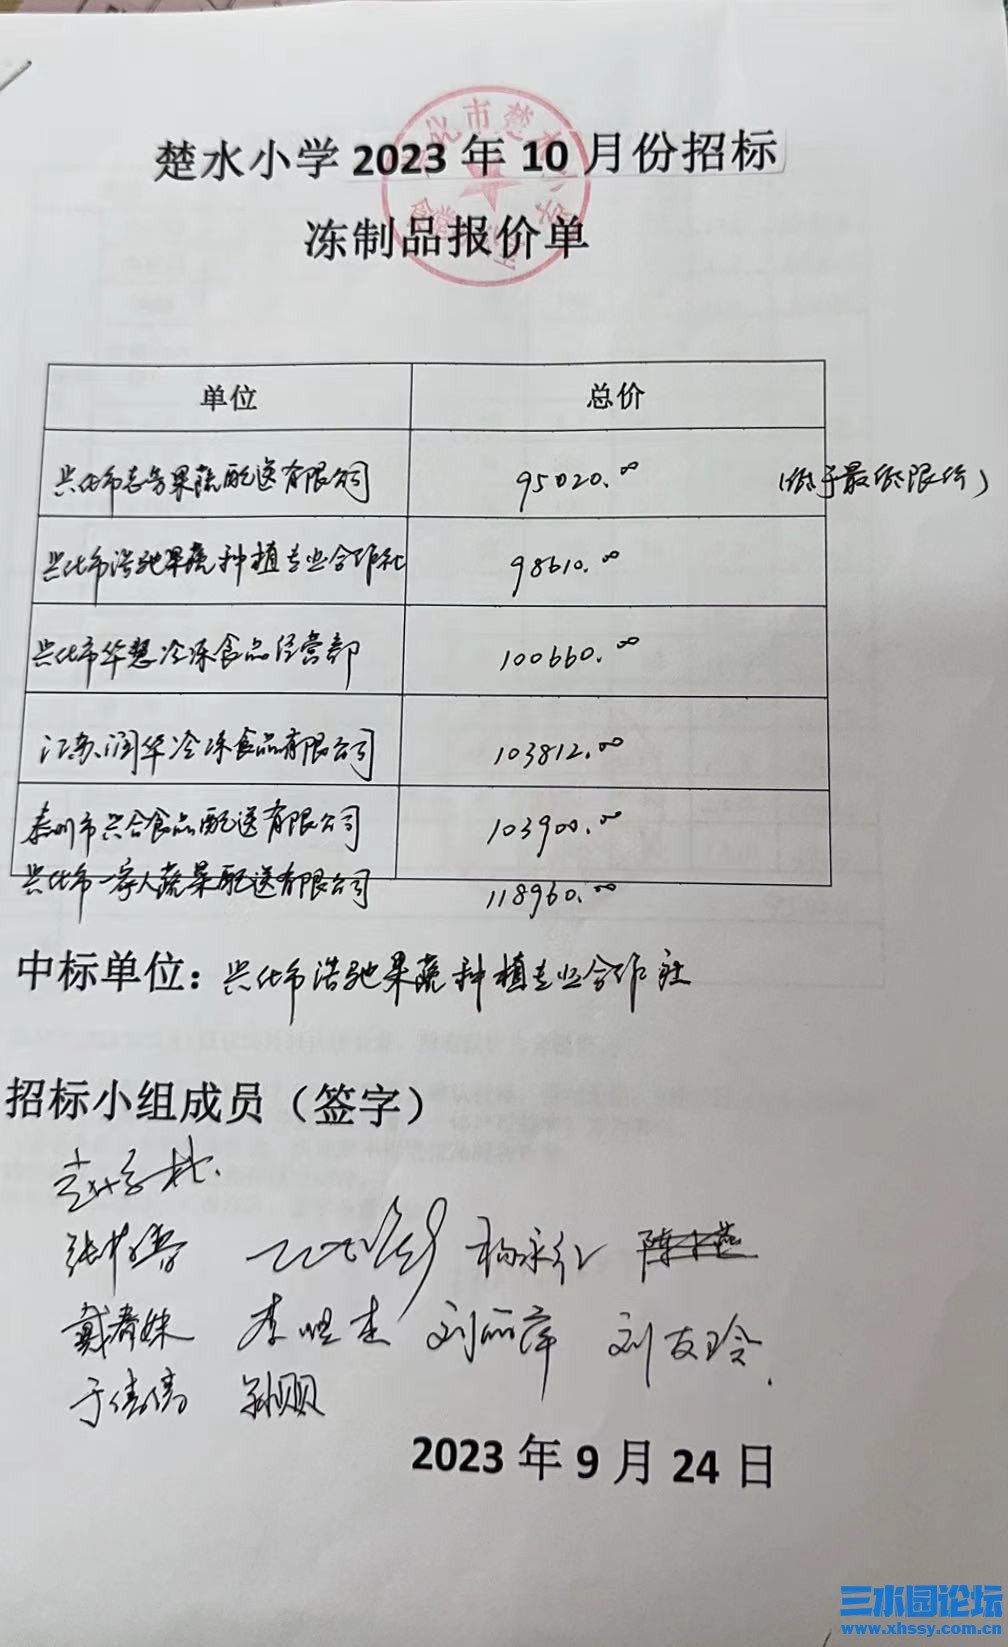 楚水小学 2023 年 10 月份招标
冻制品报价单
单位 总价
兴化市志务果蔬配送有限公司 95020.00 (低于最低限价)
兴化市浩驰果蔬种植专业合作社 98610.00
兴化市华慧冷冻食品经营部 100660.00
江苏润华冷冻食品有限公司 103812.00
泰州市兴合食品配送有限公司 103900.00
兴化市一家人蔬菜配送有限公司 118960.00
中标单位：兴化市浩驰果蔬种植专业合作社
招标小组成员（签字）
杨永红
戴春妹 刘丽萍 刘友玲
于倩倩 孙贝贝
2023 年 9 月 24 日
三水园论坛
www.xhssy.com.cn